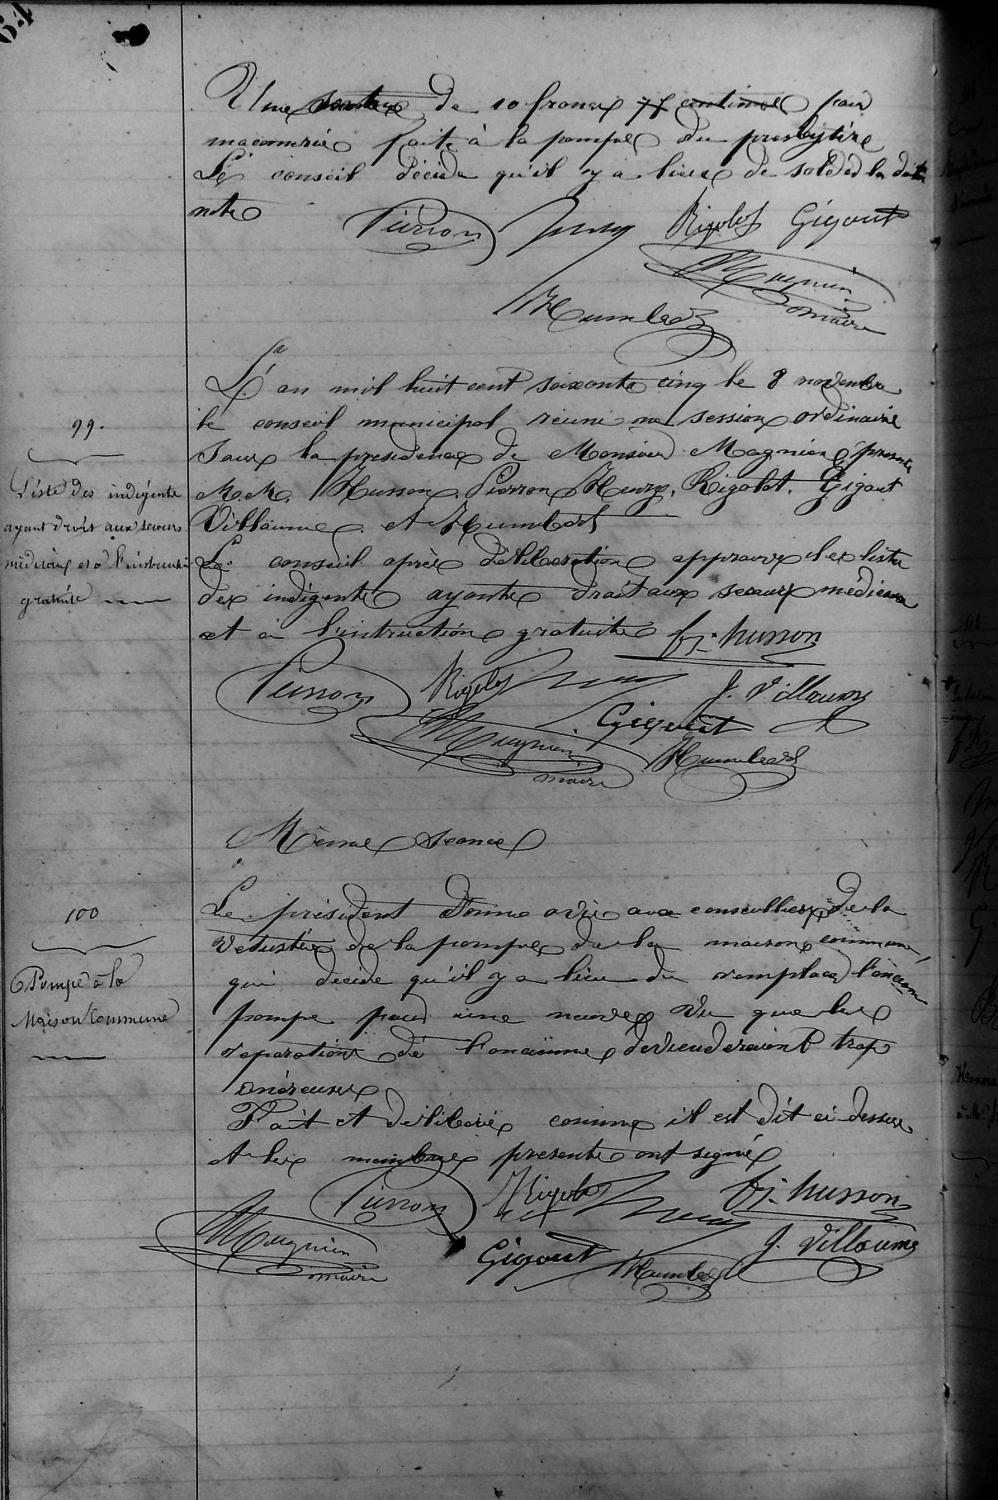 64
Une de 10 francs 75 centimes pour
maconnerie faite à la pompe du presbytère
Le conseil décide qu'il y a lieux de solded la dite
note
Pierson Henry Rigolot Gigout
Magnien
maire
Humbert
L'an mil huit cent soixante cinq le 8 novembre
99.
le conseil municipal réuni en session ordinaire
sous la presidence de Monsieur Magnien, présents
Liste des indigents
M.M. Husson, Pierson, Henry, Rigolot, Gigout
ayant droit aux secours
Villaume et Humbert
médicaux et à l'instruction
Le conseil après délibération approuve les liste
gratuite
des indigents ayants droit aux secours médicaux
et à l'intruction gratuite fx. husson
Pierson Rigolot Henry J. Villaume
Gigout
Magnien
maire
Humbert
Même séance
100
Le président donne avis aux conseilliers de la
vetustée de la pompe de la maison commune,
Pompe à la
qui décide qu'il y a lieu de remplacer l'ancien
Maison Commune
pompe pour une neuve vu que les
reparations de l'ancienne deviendraient trop
onéreuses
Fait et délibéré comme il est dit ci dessus
et les membres presents ont signé
Pierson Rigolot Henry fx. husson
Magnien
maire
Gigout Humbert J. Villaume